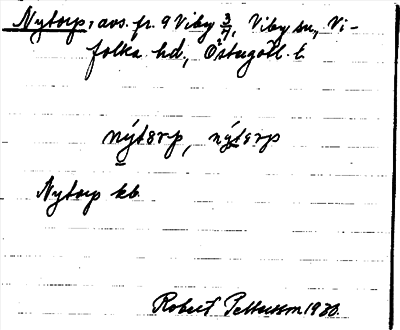 Nytorp, avs. fr. 9 Viby 3/7, Viby sn, Vi-
folka hd, Östergötl. l.
nýtərp, nýtərp
Nytorp kb
Robert Pettersson 1930.